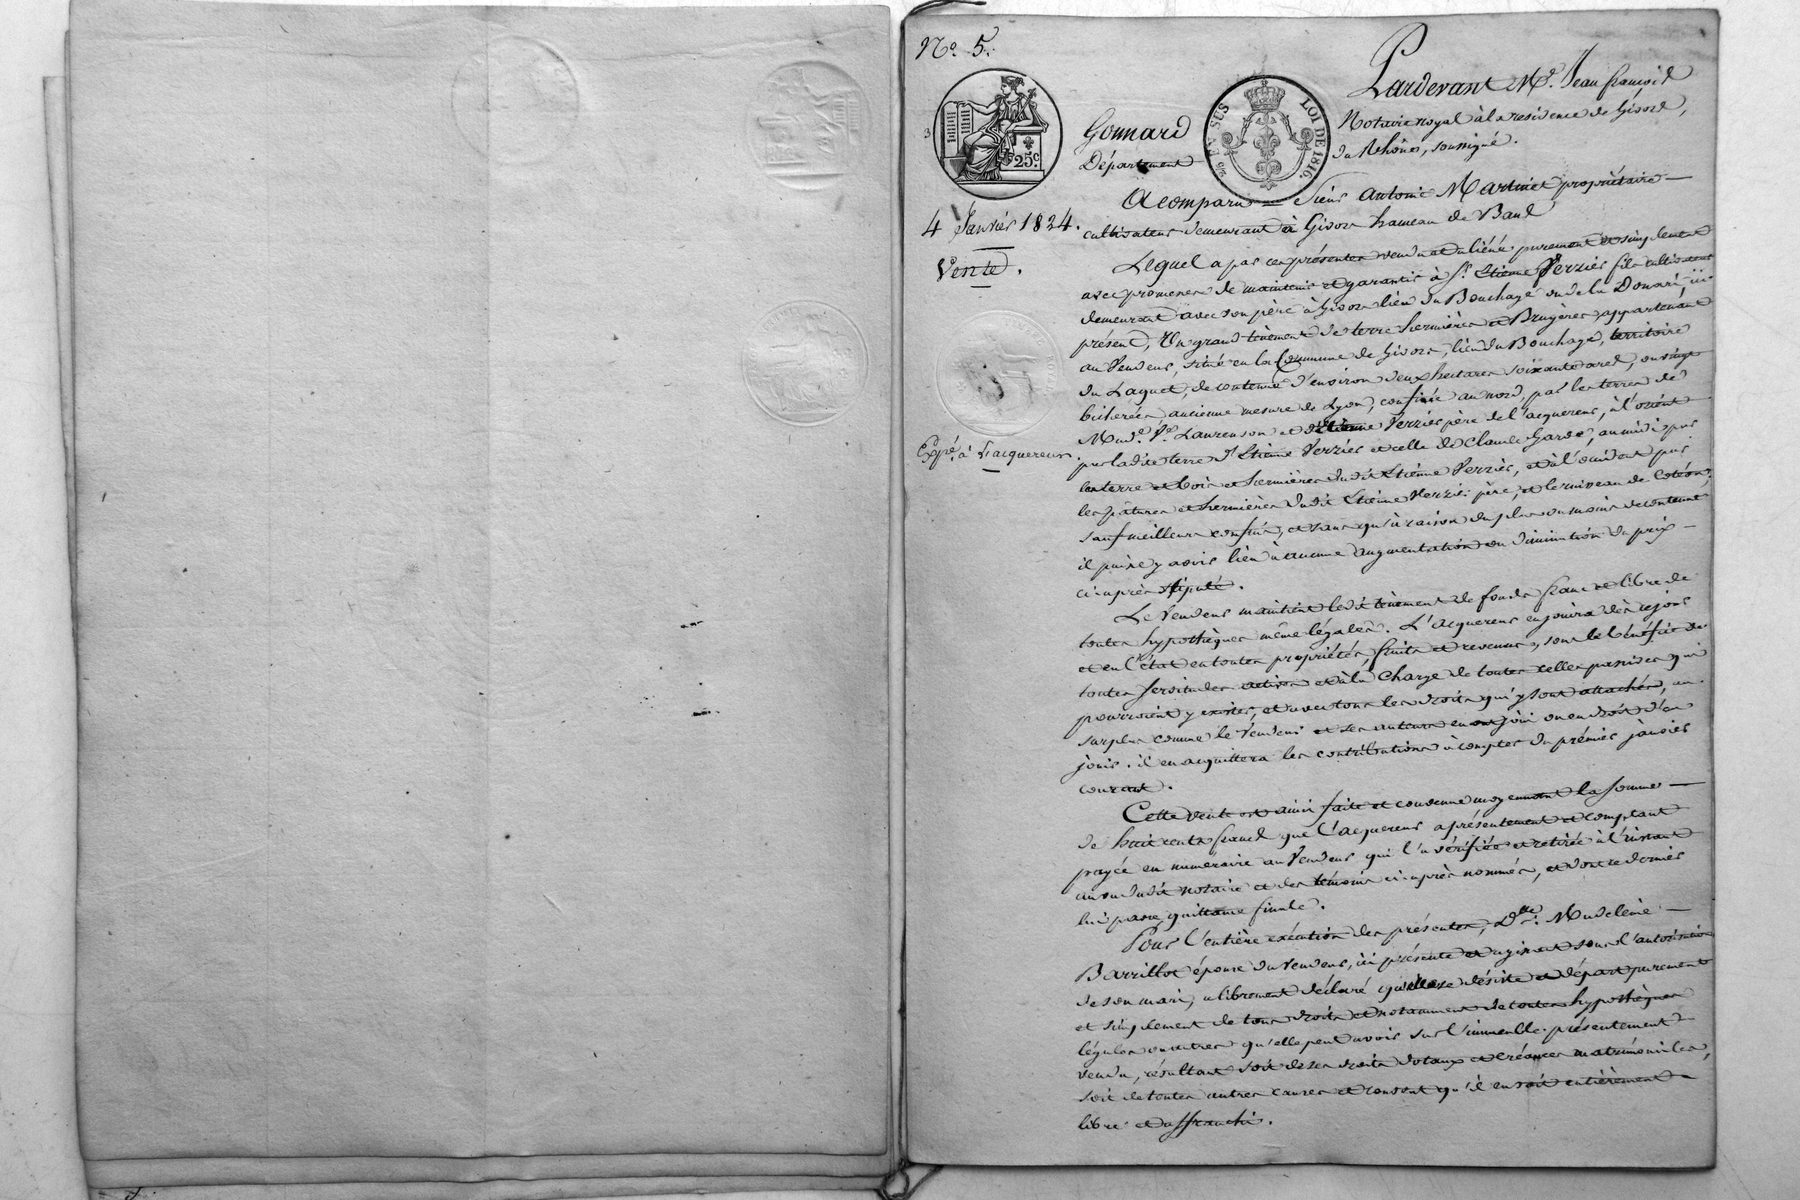 N.o 5.
Pardevant M.e Jean françois
Gonnard
Notaire royal à la residence de Givors,
Département
du Rhône, soussigné.
25c
EN SUS
LOI DE 1816.
4 Janvier 1824.
Vente.
Expé. à L'acquereur.
A comparu Sieur Antoine Martinet propriétaire
cultivateur demeurant à Givors hameau de Bans
Lequel a par ces présentes vendu et aliéné purement et simplement
avec promesse de maintenir et garantir à Sr. Etienne Verzier fils cultivateur
demeurant avec son père à Givors lieu du Bouchage ici
présent, Un grand tènement de terre hermières et Bruyères appartenant
au Vendeur, situé en la Commune de Givors, lieu du Bouchage, territoire
du Laquet, de contenue d'environ deux hectares soixante ares, ou vingt
bicherées ancienne mesure de Lyon, confiné au nord, par les terres de
Mad.e V.e Laurenson et d'Etienne Verzier père de l'acquereur, à l'orient
par ladite terre d'Etienne Verzier et celle de Claude Garde, au midi par
les terre et bois et hermières dudit Etienne Verzier, et à l'occident par
les patures et hermières dudit Etienne Verzier père, et le ruisseau de Cotéon,
sauf meilleurs confins, et sans qu'à raison du plus ou moins de contenue
il puisse y avoir lieu à aucune augmentation ou diminution du prix
ci-après stipulé.
Le Vendeur maintient ledit tènement de fonds franc et libre de
toutes hypothèques même légales. L'acquereur en jouira dès ce jour
et en l'état en toutes propriétés, fruits et revenus, sous le bénéfice de
toutes servitudes actives et à la charge de toutes celles passives qui
pourroient y exister, et avec tous les droits qui y sont attachés, au
surplus comme le Vendeur et ses auteurs en ont joui ou en droit d'en
jouir. il en acquittera les contributions à compter du prémier janvier
courant.
Cette vente est ainsi faite et convenue moyennant la somme
de huit cents francs que l'acquereur a présentement et comptant
payée en numéraire au Vendeur qui l'a vérifiée et retirée à l'instant
au vu dudit notaire et des témoins ci-après nommés, et dont ce dernier
lui passe quittance finale.
Pour l'entière exécution des présentes, D.lle Madeleine
Barrillot épouse du Vendeur, ici présente et agissant sous l'autorisation
de son mari, a librement déclaré qu'elle se désiste et départ purement
et simplement de tous droits et notamment de toutes hypothèques
légales ou autres qu'elle peut avoir sur l'immeuble présentement
vendu, résultant soit de ses droits dotaux et créances matrimoniales,
soit de toutes autres causes et consent qu'il en soit entièrement
libre et affranchi.